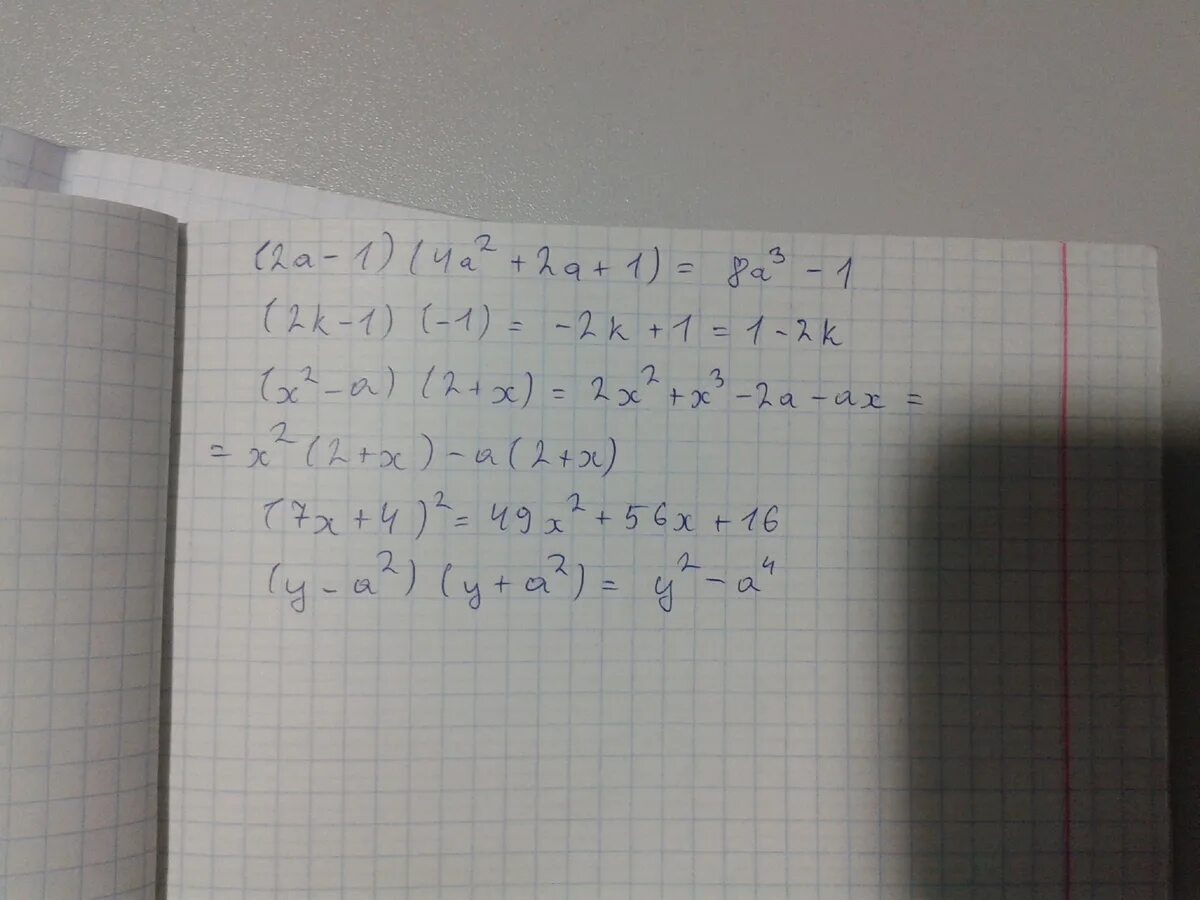 (2a-1)(4a²+2a+1) = 8a³-1
(2k-1)(-1) = -2k+1 = 1-2k
(x²-a)(2+x) = 2x²+x³-2a-ax =
= x²(2+x)-a(2+x)
(7x+4)² = 49x²+56x+16
(y-a²)(y+a²) = y²-a⁴